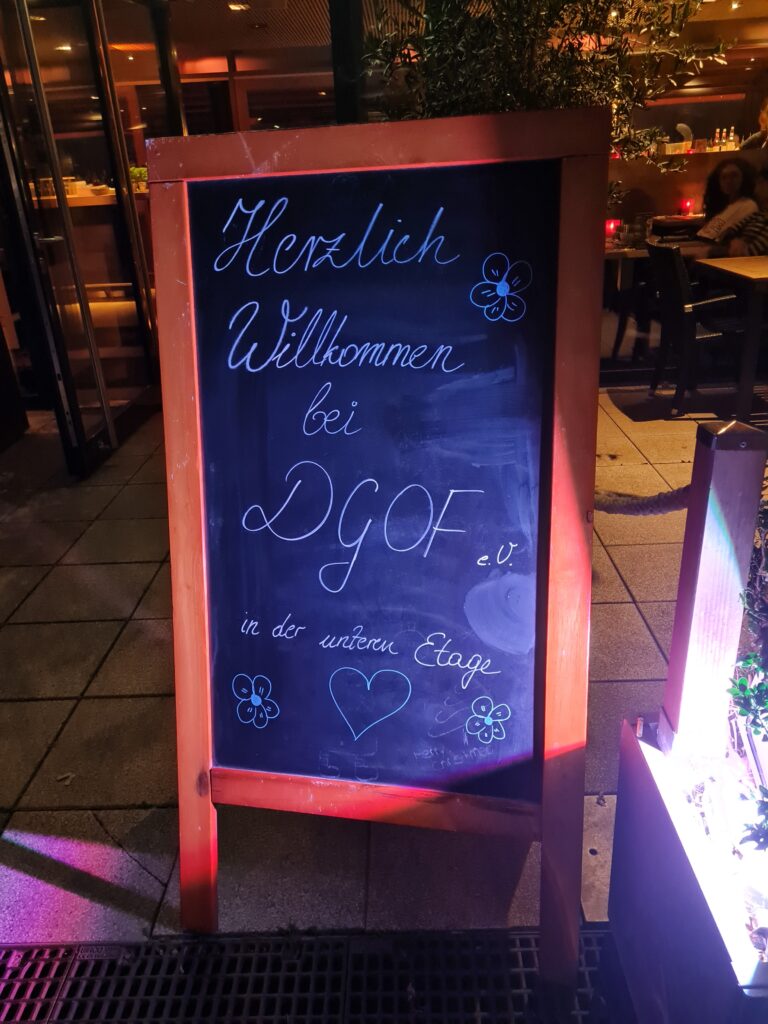 Herzlich
Willkommen
bei
DGOF
e.V.
in der unteren Etage